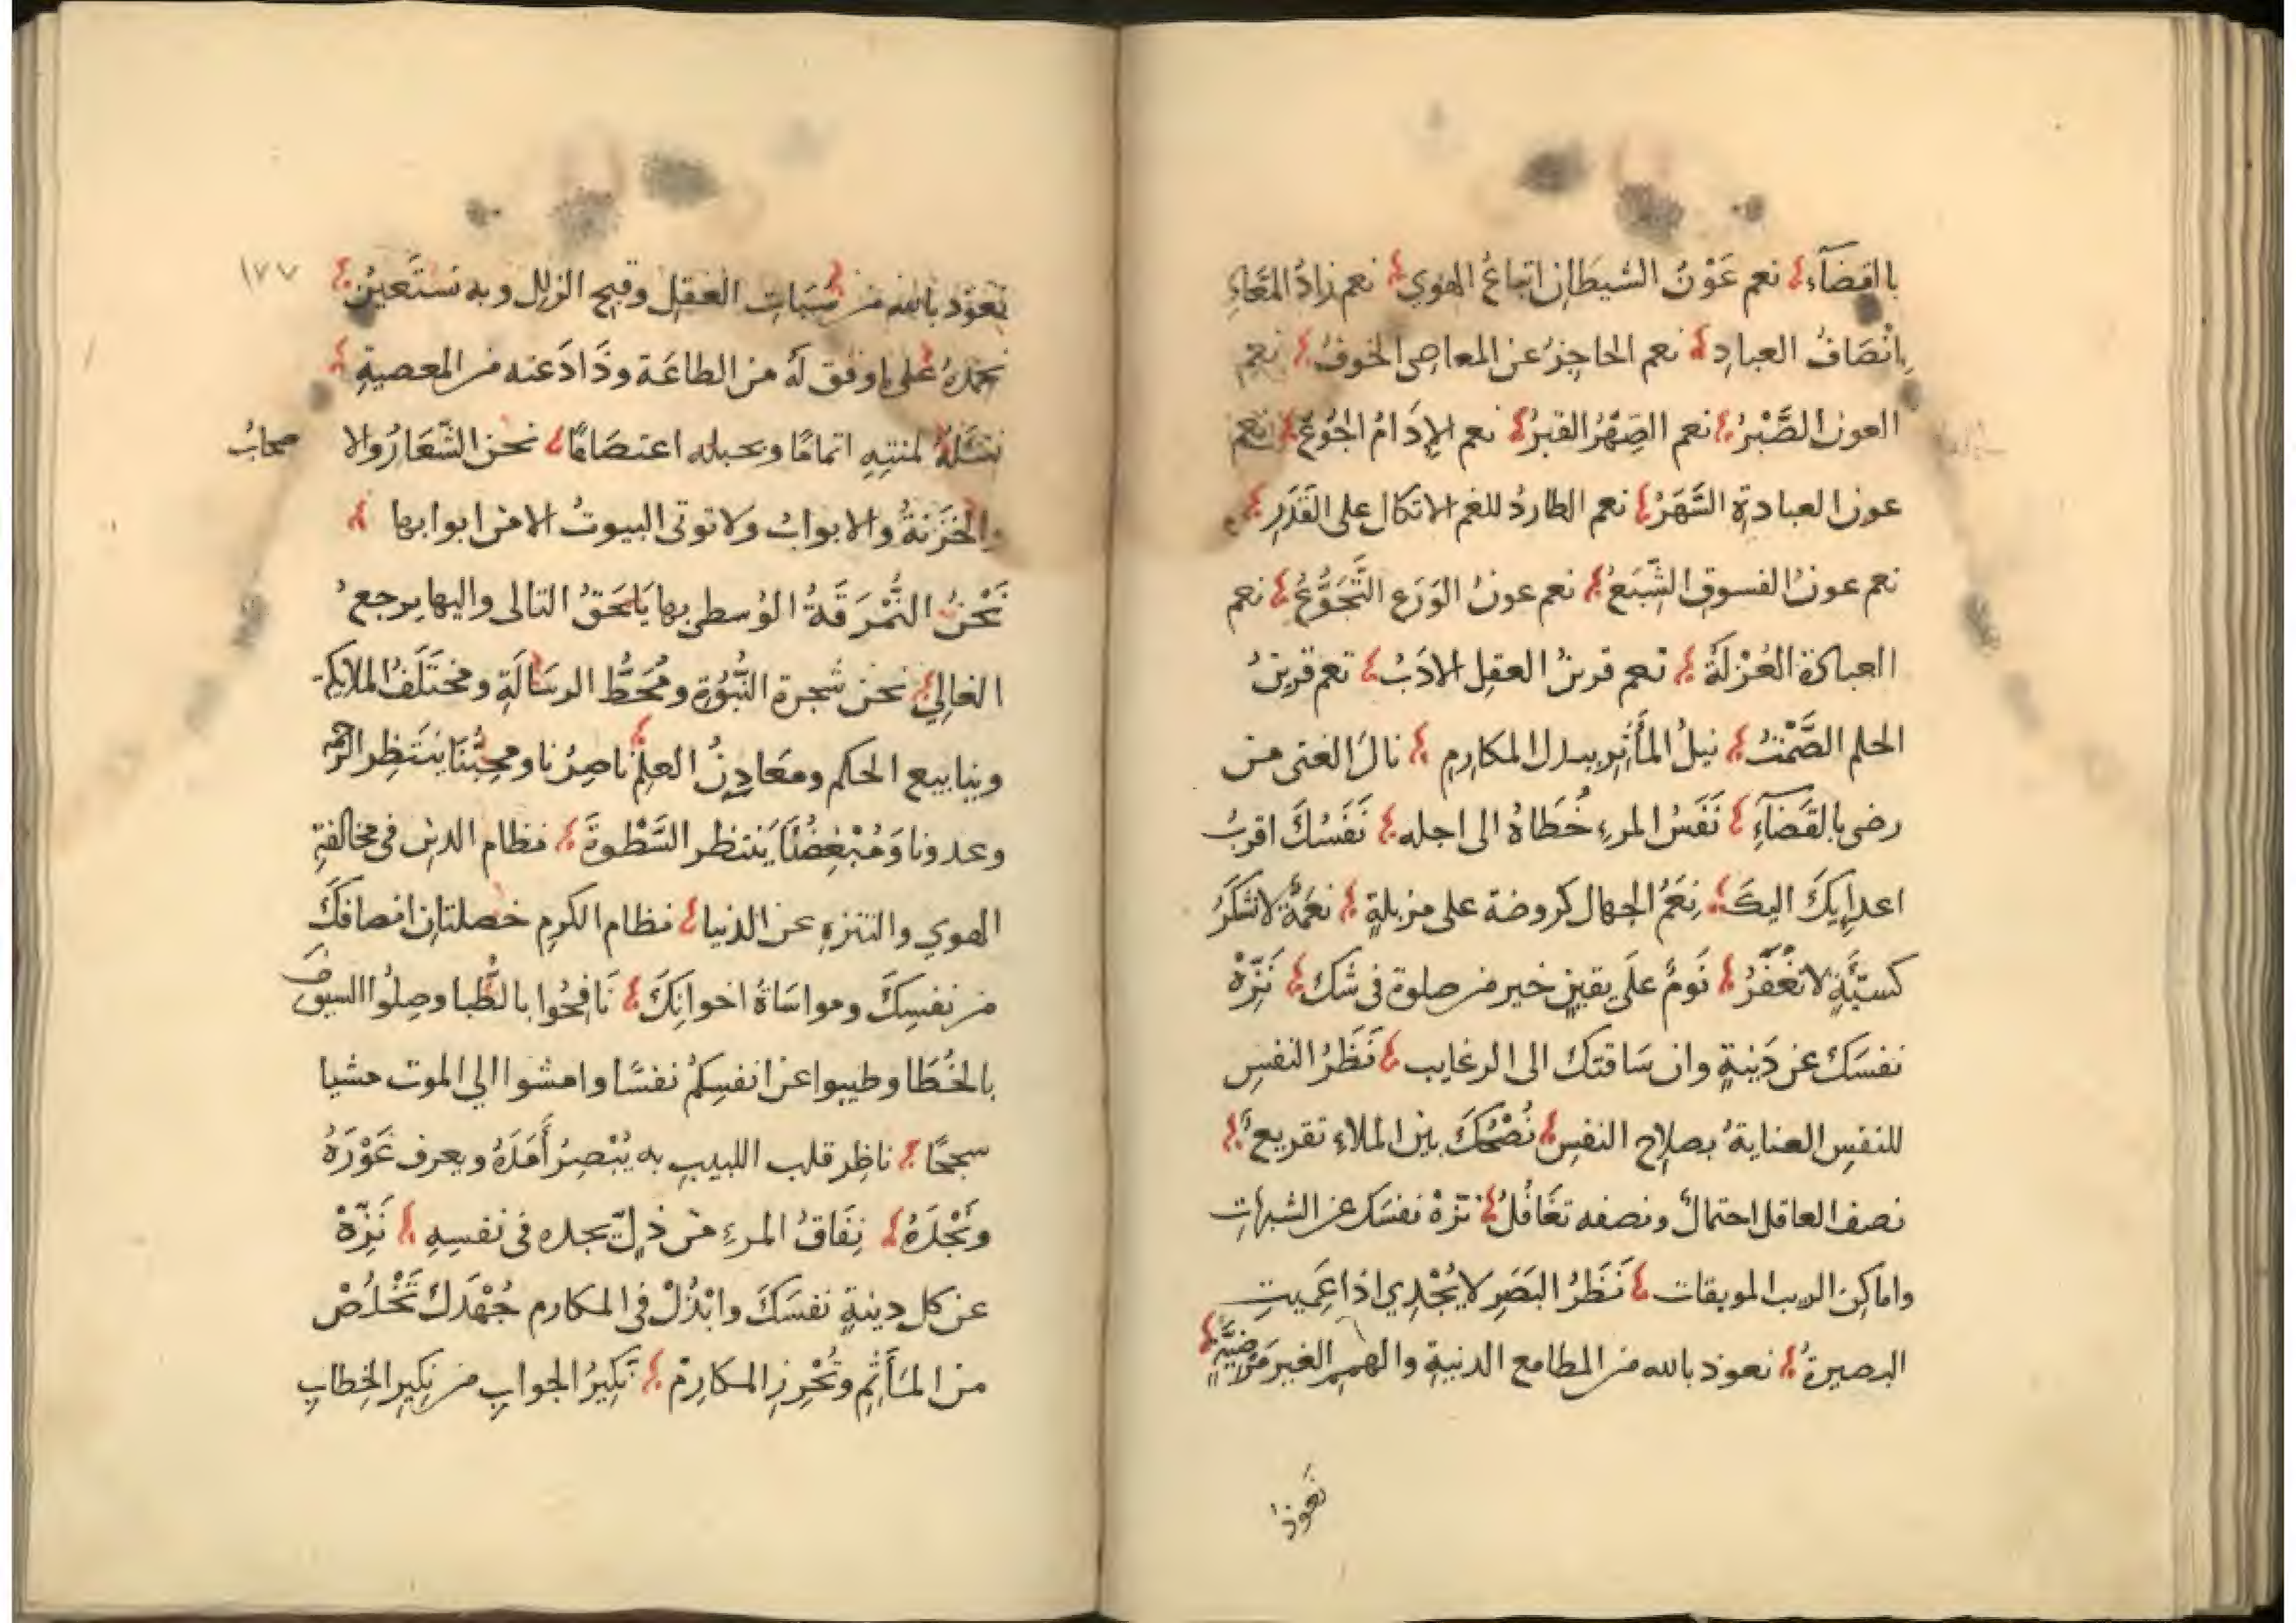 بالقضآء نعم عَوْنُ الشيطان اتباعُ الهوي نعم زادُ المَعَادِ
اِنْصَافُ العباد نعم الحاجزُ عن المعاصي الخوفُ نعم
العون الصَّبْرُ نعم الصِهْرُ القبرُ نعم الإدَامُ الجُوْعُ نعم
عون العبادة السَّهَرُ نعم الطاردُ للغم الاتكال على القَدَرِ
نعم عونُ الفسوق الشِّبَعُ نعم عونُ الوَرَع التَّجَوُّعُ نعم
العبادة العُزْلَةُ نعم قرينُ العقل الادَبُ نعم قرينُ
الحلم الصَّمْتُ نيلُ المأثِر ببذل المكارِمِ نالَ الغنى من
رضى بالقَضَآءِ نَفَسُ المرءِ خُطَاهُ الى اجله نَفَسُكَ اقربُ
اعدايِكَ اليكَ نِعَمُ الجهال كروضة على مزبلةٍ نعمَةٌ لاتشكَرُ
كسيّئَةٍ لاتغْفَرُ نَومٌ علَى يقينٍ خير من صلوة فى شك نَزِّهْ
نفسَكَ عن دَنِيةٍ وان سَاقتك الى الرغايب نَظَرُ النفسِ
للنفسِ العنايةُ بصلاح النفسِ نُصْحُكَ بين الملاءِ تقريعٌ
نصف العاقل احتمالٌ ونصفه تغَافُلٌ نزّهْ نفسَكَ عن الشبهاتِ
واماكِن الريب الموبقات نَظَرُ البَصَرِ لا يُجْدِي اذا عَمِيتِ
البصيرةُ نعوذ بالله من المطامع الدنيةِ والهممِ الغير مَرْضيَّةٍ
نعوذ
نعوذ بالله من سُبَاتِ العقل وقبح الزلل وبه نستَعينُ
١٧٧
نحمَدهُ على ما وفق لَهُ من الطاعَة وذَادَ عنه من المعصيةِ
نسْئَلهُ لمنتهِ اتمامًا وبحبله اعتصَامًا نحن الشّعَارُ والا صحابُ
والخَزَنةُ والابوابُ ولا توتى البيوتُ الا من ابوابها
نَحْنُ النُّمْرَقَةُ الوُسطى بها يَلحَقُ التالى واليها يرجعُ
الغالِي نحن شجرة النُّبُوَّةِ ومُحَطُّ الرسَالَةِ ومختَلَفُ الملايكة
وينابيع الحكم ومعَادِنُ العلِمْ ناصِرُنا ومحِبُّنَا ينتَظِر الرحمة
وعدونا وَمُبْغِضُنَا يَنتظر السَّطْوةَ نظام الدين فى مخالفةِ
الهوي والتنزهِ عن الدنيا نظام الكرمِ خصلتان انصافكَ
من نفسِكَ ومواسَاةُ اخوانِكَ نَافِحُوا بالظُّبا وصِلُوا السيوفَ
بالخُطَا وطيبوا عن انفسِكمْ نفسًا وامشوا الي الموت مشيا
سجحًا ناظِر قلب اللبيبِ به يُبْصِرُ أَمَدَهُ ويعرف غَوْرَهُ
ونَجْدَهُ نِفَاقُ المرءِ من ذلٍّ يجده فى نفسِهِ نَزّهْ
عن كل دنيةٍ نفسَكَ وابْذُلْ فى المكارم جُهْدَكَ تَخْلُصْ
من المَأَثِمِ وتُحْرِزِ المكارِمْ نكِيرُ الجوابِ من نكِيرِ الخِطابِ